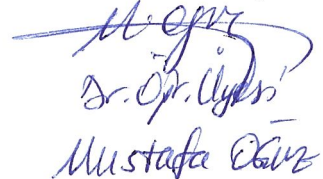 M. Oğuz
Dr. Öğr. Üyesi
Mustafa OĞUZ